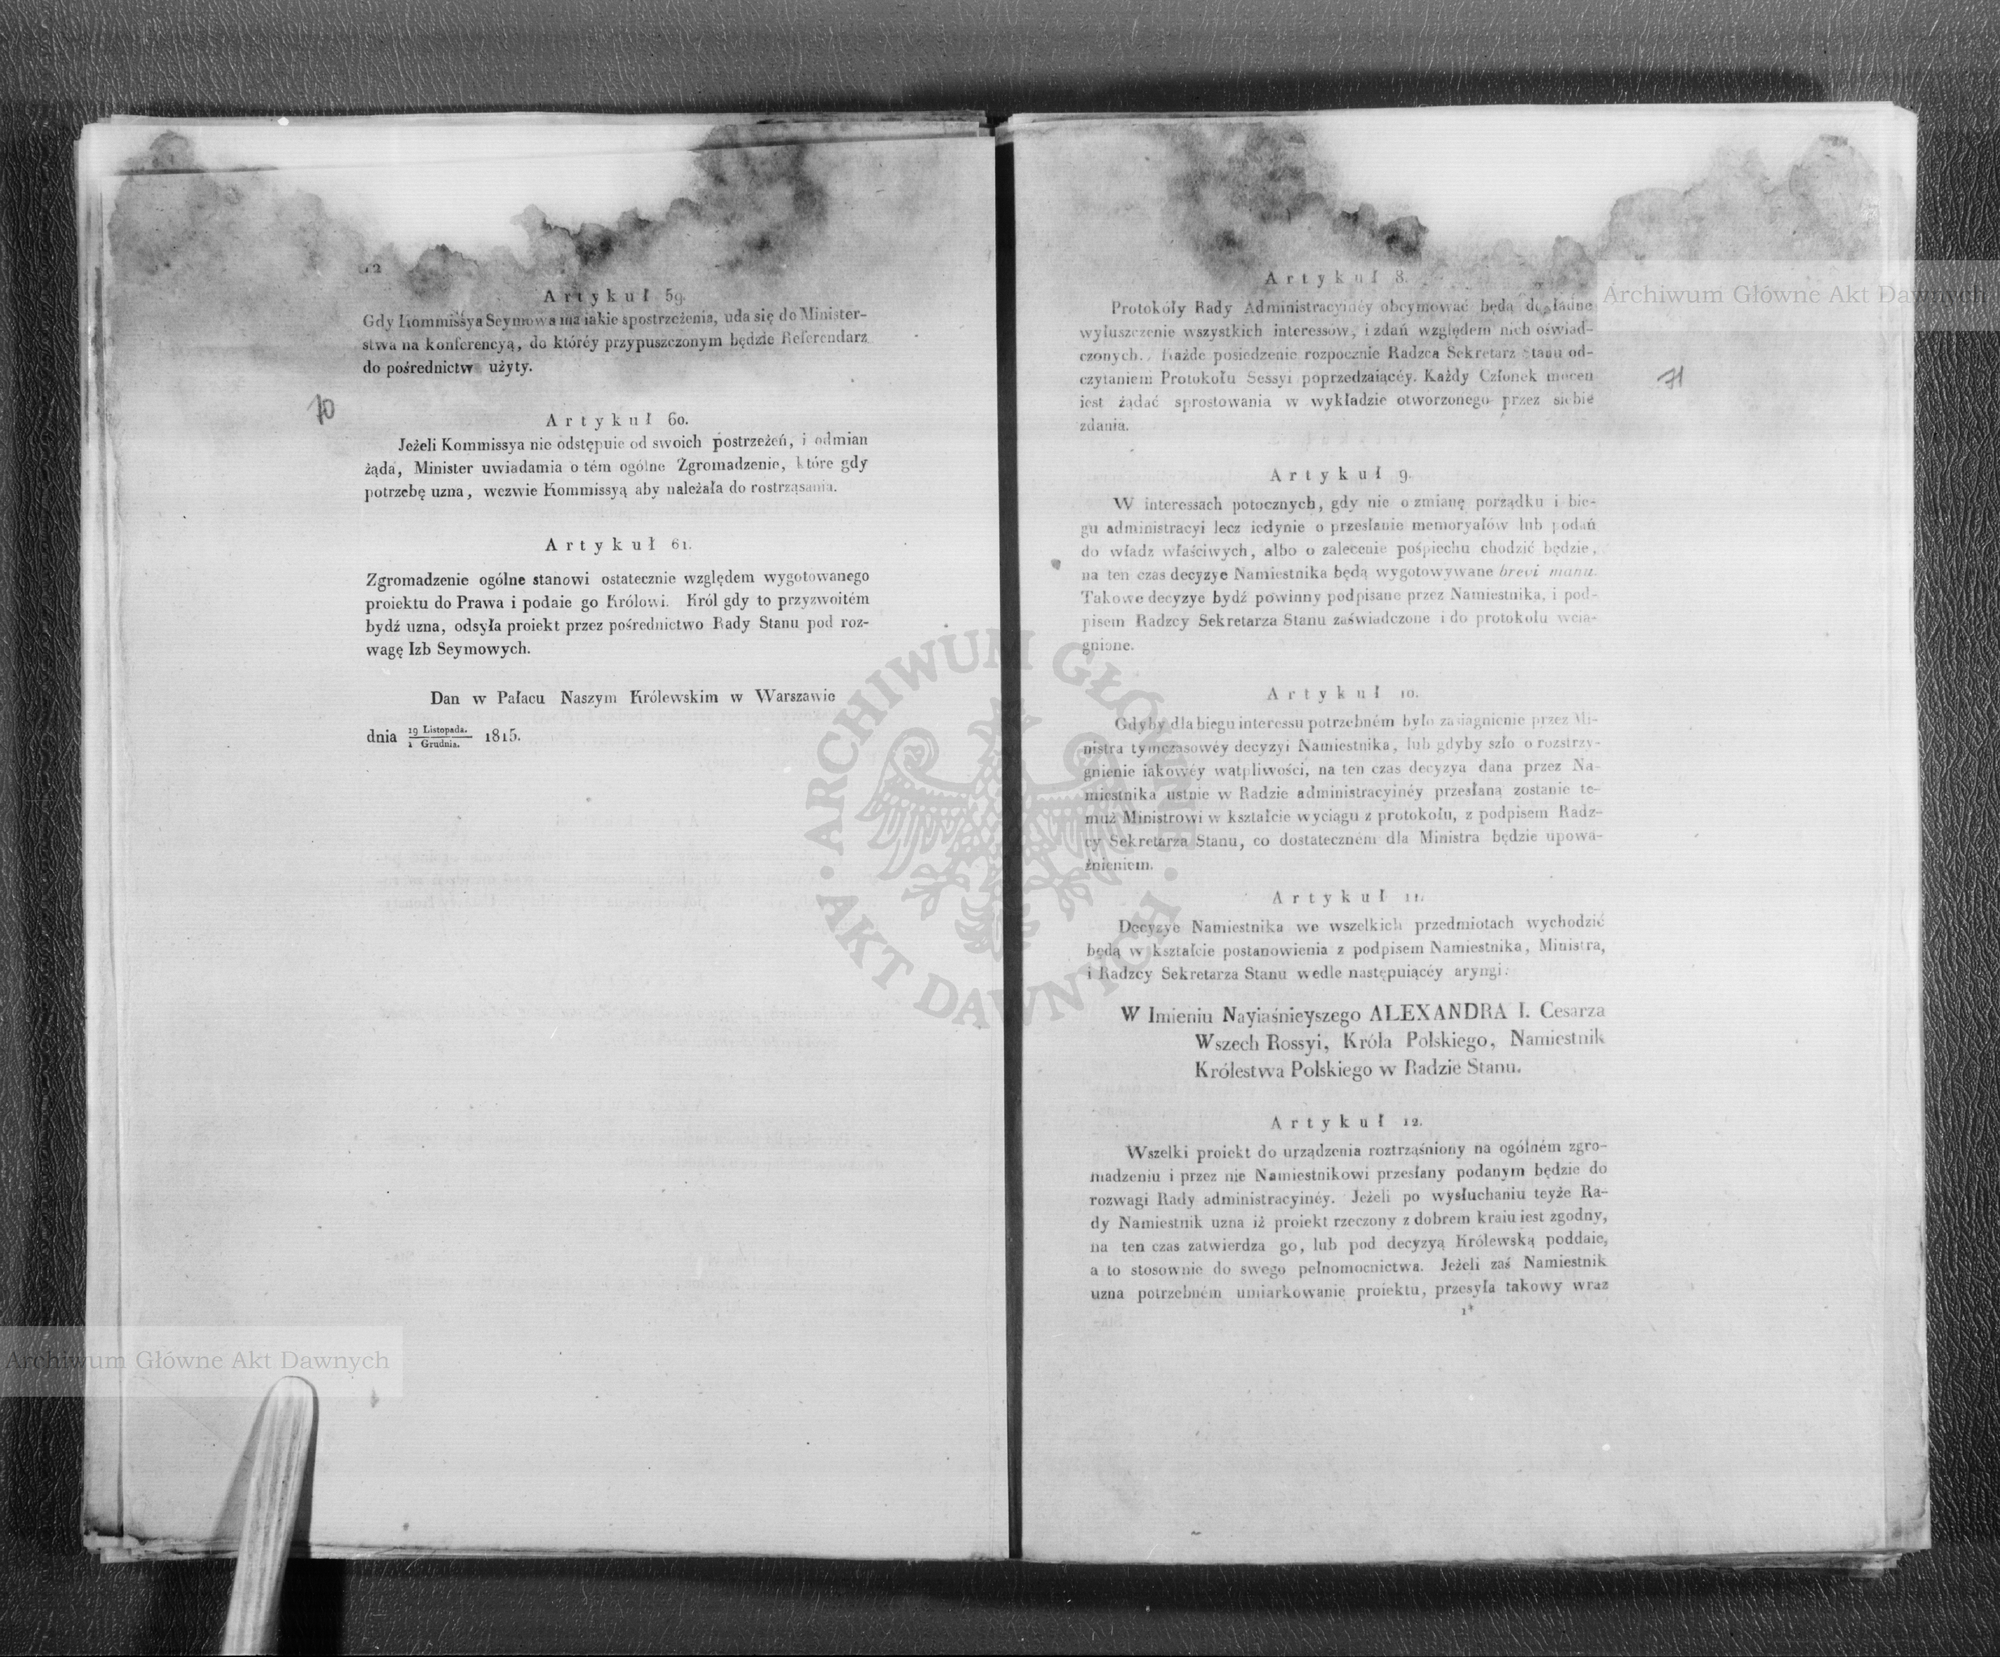 Artykuł 59.
Gdy Kommissya Seymowa ma iakie spostrzeżenia, uda się do Minister-
stwa na konferencyą, do któréy przypuszczonym będzie Referendarz
do pośrednictw użyty.
70
Artykuł 60.
Jeżeli Kommissya nie odstępuie od swoich postrzeżeń, i odmian
żąda, Minister uwiadamia o tém ogólne Zgromadzenie, które gdy
potrzebę uzna, wezwie Kommissyą aby należała do rostrząsania.
Artykuł 61.
Zgromadzenie ogólne stanowi ostatecznie względem wygotowanego
proiektu do Prawa i podaie go Królowi. Król gdy to przyzwoitém
bydź uzna, odsyła proiekt przez pośrednictwo Rady Stanu pod roz-
wagę Izb Seymowych.
Dan w Pałacu Naszym Królewskim w Warszawie
dnia 19 Listopada. / 1 Grudnia. 1815.
Artykuł 8.
Protokóły Rady Administracyinéy obeymować będą dokładne
wyłuszczenie wszystkich interessów, i zdań względem nich oświad-
czonych. Każde posiedzenie rozpocznie Radzca Sekretarz Stanu od-
czytaniem Protokołu Sessyi poprzedzaiącéy. Każdy Członek mocen
iest żądać sprostowania w wykładzie otworzonego przez siebie
zdania.
71
Artykuł 9.
W interessach potocznych, gdy nie o zmianę porządku i bie-
gu administracyi lecz iedynie o przesłanie memoryałów lub podań
do władz właściwych, albo o zalecenie pośpiechu chodzić będzie,
na ten czas decyzye Namiestnika będą wygotowywane brevi manu.
Takowe decyzye bydź powinny podpisane przez Namiestnika, i pod-
pisem Radzcy Sekretarza Stanu zaświadczone i do protokołu wcią-
gnione.
Artykuł 10.
Gdyby dla biegu interessu potrzebném było zasiągnienie przez Mi-
nistra tymczasowéy decyzyi Namiestnika, lub gdyby szło o rozstrzy-
gnienie iakowéy wątpliwości, na ten czas decyzya dana przez Na-
miestnika ustnie w Radzie administracyinéy przesłaną zostanie te-
muż Ministrowi w kształcie wyciągu z protokołu, z podpisem Radz-
cy Sekretarza Stanu, co dostateczném dla Ministra będzie upowa-
żnieniem.
Artykuł 11.
Decyzye Namiestnika we wszelkich przedmiotach wychodzić
będą w kształcie postanowienia z podpisem Namiestnika, Ministra,
i Radzcy Sekretarza Stanu wedle następuiącéy aryngi:
W Imieniu Nayiaśnieyszego ALEXANDRA I. Cesarza
Wszech Rossyi, Króla Polskiego, Namiestnik
Królestwa Polskiego w Radzie Stanu.
Artykuł 12.
Wszelki proiekt do urządzenia roztrząśniony na ogólném zgro-
madzeniu i przez nie Namiestnikowi przesłany podanym będzie do
rozwagi Rady administracyinéy. Jeżeli po wysłuchaniu teyże Ra-
dy Namiestnik uzna iż proiekt rzeczony z dobrem kraiu iest zgodny,
na ten czas zatwierdza go, lub pod decyzyą Królewską poddaie,
a to stosownie do swego pełnomocnictwa. Jeżeli zaś Namiestnik
uzna potrzebném umiarkowanie proiektu, przesyła takowy wraz
1*
Archiwum Główne Akt Dawnych
Archiwum Główne Akt Dawnych
ARCHIWUM GŁÓWNE AKT DAWNYCH